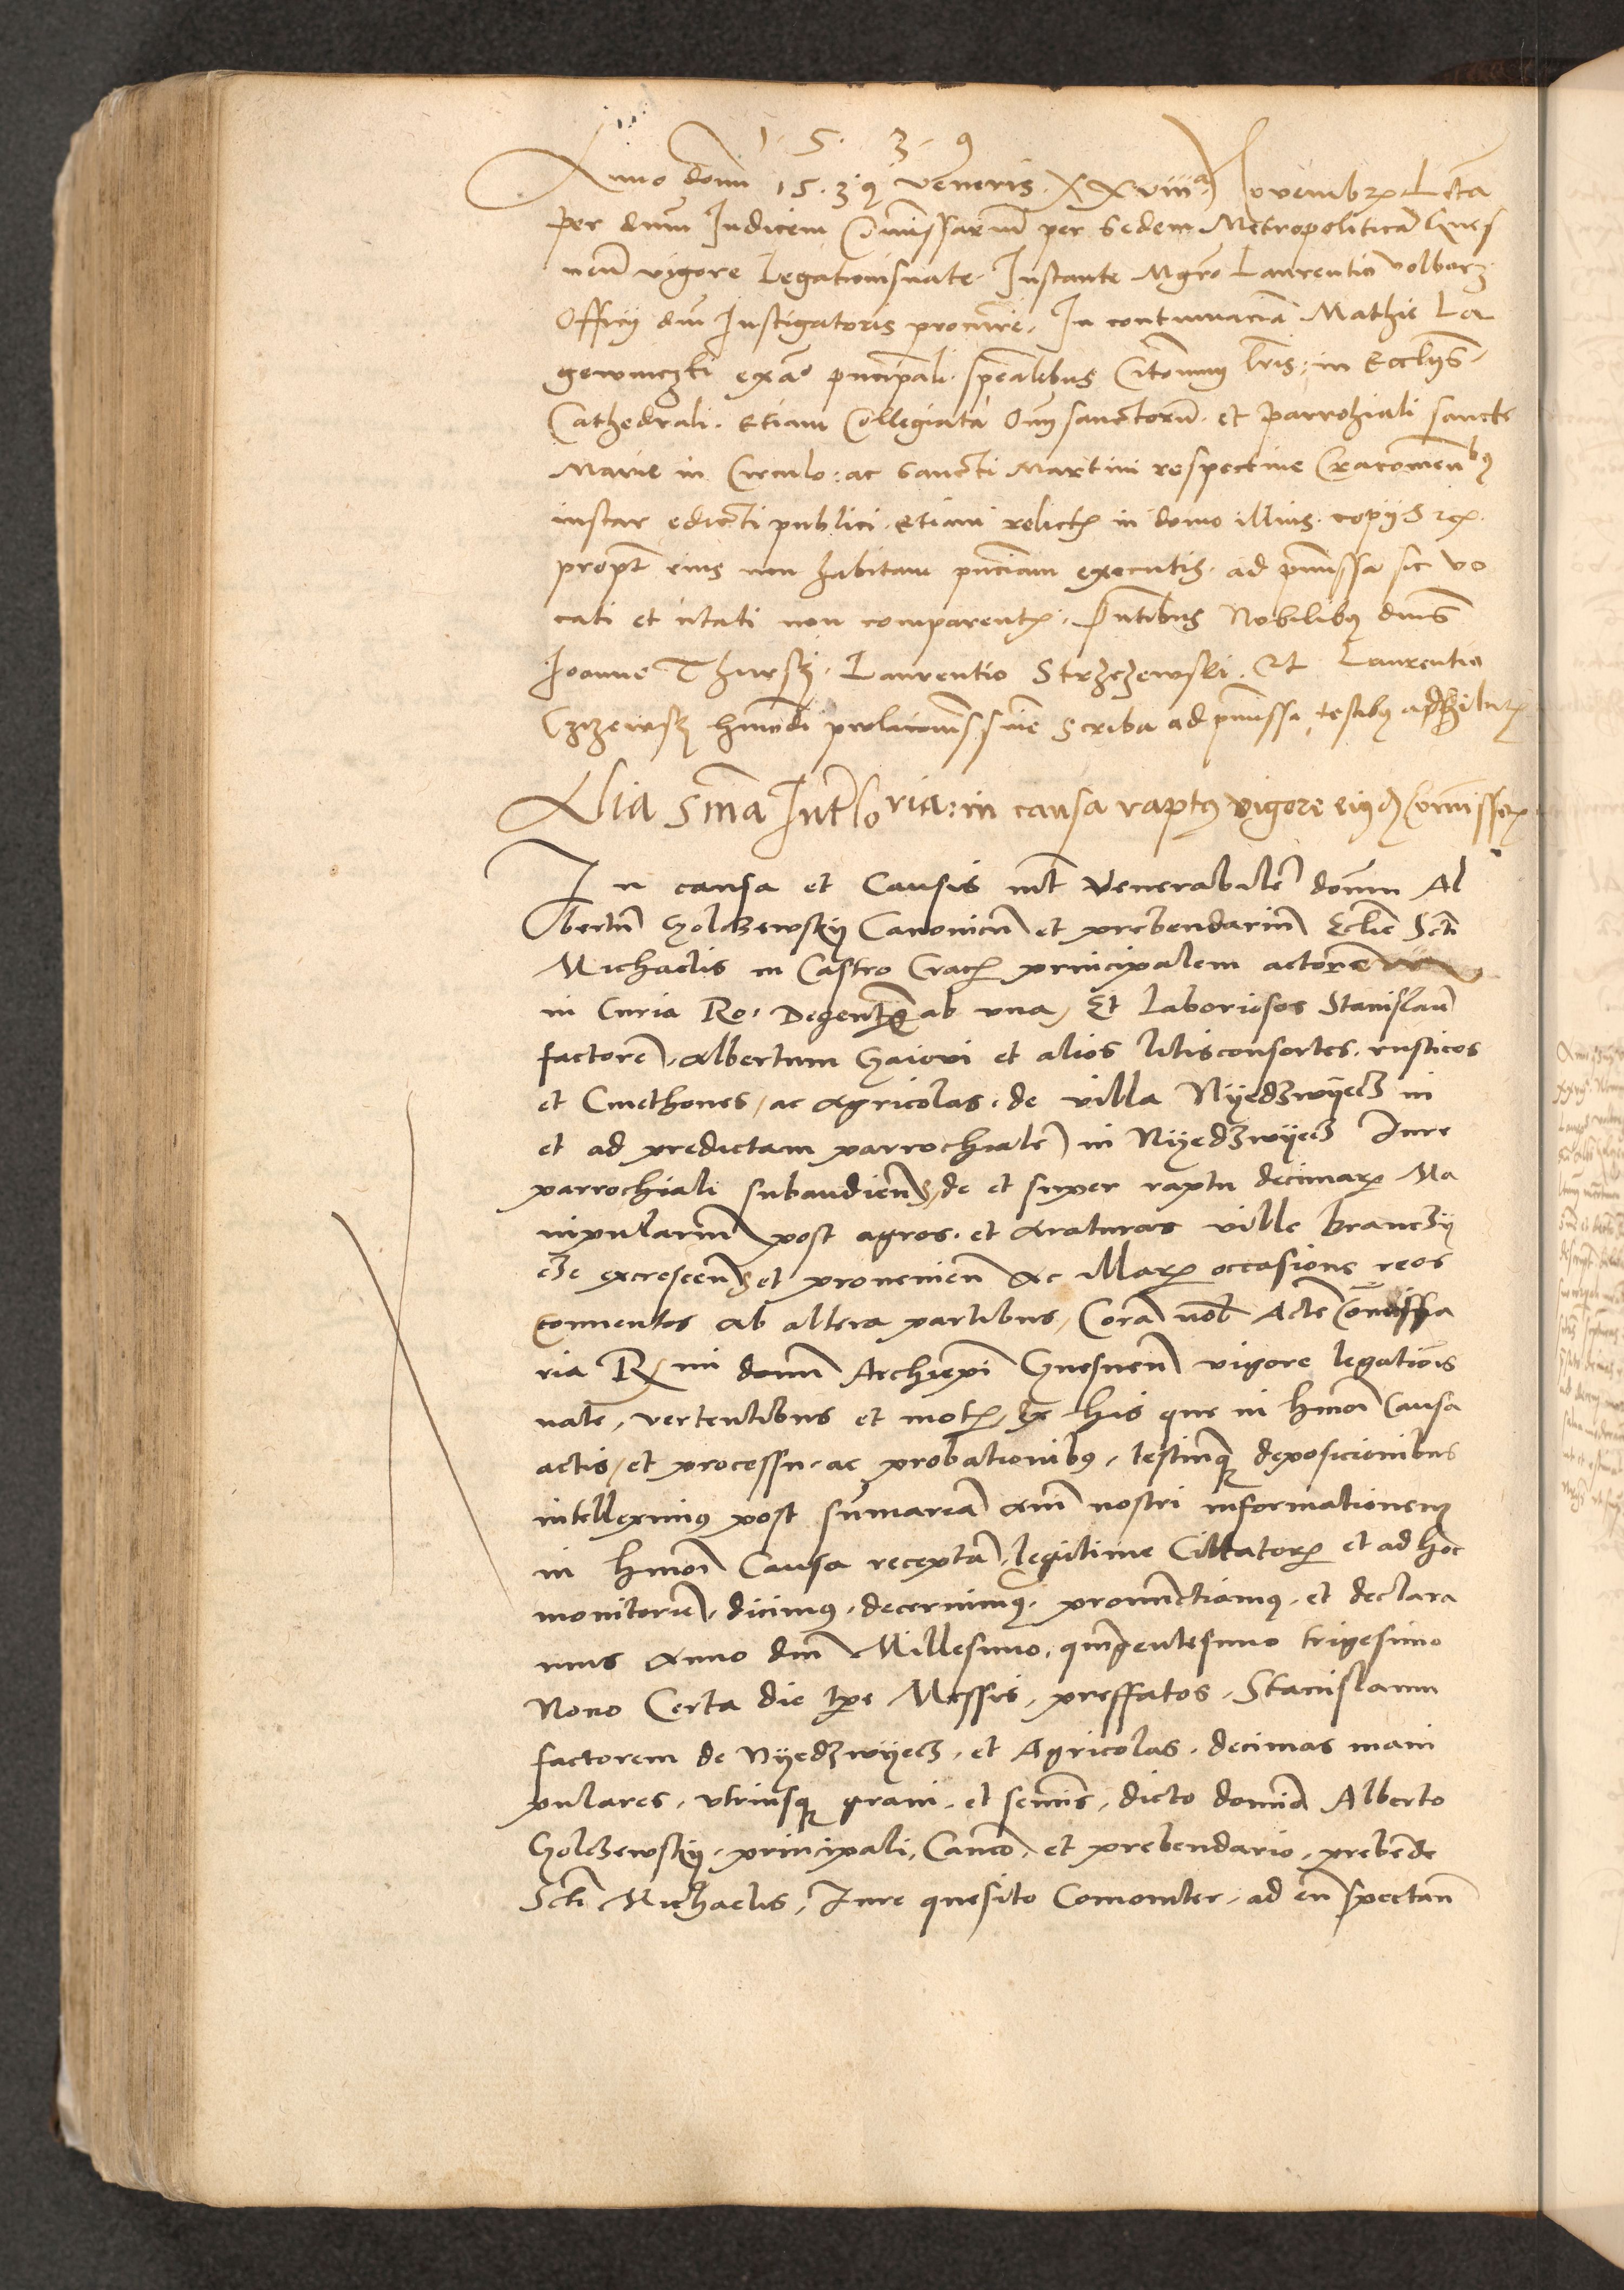 1 · 5 · 3 · 9
Anno domi 15.39 veneris. XXviiia Novembr. Lcta
Per dnm Iudicem Comissarium per Sedem Metropolitica Gnes
nen vigore Legationis nate. Instante Mgro Laurentio Wolborz
Officij dni Instigatoris procure. In contumacia Mathie La
gewniczki exa. pncipali. spealibus Citonnus lris: in Eccliis
Cathedrali. Etiam Collegiata Omi sanctoru. et parrohiali sancte
Marie in Circulo: ac Sancti Martini respective Cracomenbus
instar edicti publici. Etiam relict. in domo illius. copijs
propt eius non habitam pnciam executis. ad pmissa sic vo
cati et citati non comparent. Pntibus Nobilibus dnis
Ioanne Thursk. Laurentio Strzezewski. Et Laurentio
Czizewsk hmodi prolationis sine scriba ad pmissa testibus adhibit
Alia Sma Intloria: in causa raptus vigore eiusd Comissar
In causa et Causis int Venerabile donm Al
bertu Golczewsky Canonicu et prebendariu Eclie Scti
Michaelis in Castro Crac principalem actore
in Curia Ro. Degente ab una, Et Laboriosos Stanislau
factore, Albertum Gaiowi et alios litisconsortes. rusticos
et Cmethones, ac Agricolas. de villa Nyedzwyecz in
et ad predictam parrochiale in Nyedzwyecz Iure
parrochiali subaudien, de et super raptu decimar Ma
nipulariu post agros. et araturas ville branczy
cze excrescen et provenien ac illar occasione reos
conventos ab altera partibus, Cora nob Acte Comissa
ria Rmi domi Archiepi Gnesnen vigore legationis
nate, vertentibus et mot, Ex his que in hmoi Causa
actis, et processu. ac probationibus, testiumq deposicionibus
intelleximus post sumaria aim nostri informationem
in hmoi Causa recepta, legitime Cittator et ad hoc
monitorie, dicimus, decernimus, pronunctiamus, et declara
mus Anno dni Millesimo, quingentesimo trigesimo
Nono Certa die tpe Messis, preffatos, Stanislaum
factorem de Nyedzwyecz, et Agricolas, decimas mani
pulares, utriusq grani, et semis, dicto domino Alberto
Golczewsky, principali, Canco, et prebendario, prebende
Scti Michaelis, Iure quesito Comoniter, ad eu spectan